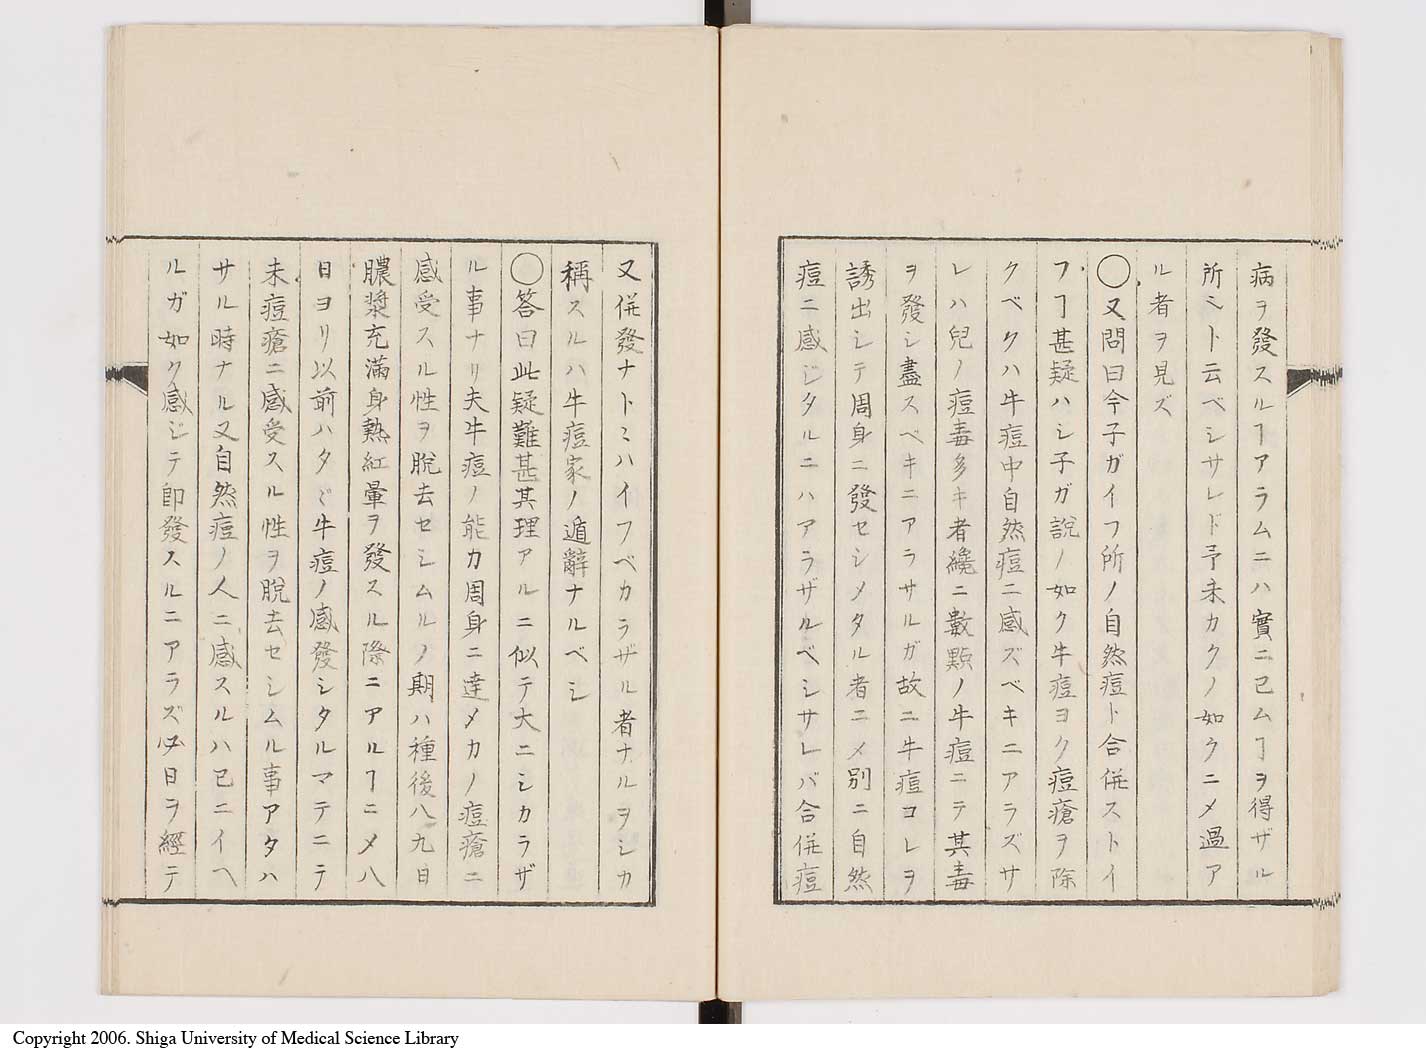 病ヲ發スルヿアラムニハ實ニ已ムヿヲ得ザル
所ニト云ベシサレド予未カクノ如クニメ過ア
ル者ヲ見ズ
○又問曰今子ガイフ所ノ自然痘ト合併ストイ
フヿ甚疑ハシ子ガ説ノ如ク牛痘ヨク痘瘡ヲ除
クベクハ牛痘中自然痘ニ感ズベキニアラズサ
レハ兒ノ痘毒多キ者纔ニ數顆ノ牛痘ニテ其毒
ヲ發シ盡スベキニアラサルガ故ニ牛痘コレヲ
誘出シテ周身ニ發セシメタル者ニメ別ニ自然
痘ニ感ジタルニハアラザルベシサレバ合併痘
又併發ナトヽハイフベカラザル者ナルヲシカ
稱スルハ牛痘家ノ遁辭ナルベシ
○答曰此疑難甚其理アルニ似テ大ニシカラザ
ル事ナリ夫牛痘ノ能力周身ニ達メカノ痘瘡ニ
感受スル性ヲ脱去セシムルノ期ハ種後八九日
膿漿充滿身熱紅暈ヲ發スル際ニアルヿニメ八
日ヨリ以前ハタヾ牛痘ノ感發シタルマテニテ
未痘瘡ニ感受スル性ヲ脱去セシムル事アタハ
サル時ナル又自然痘ノ人ニ感スルハ已ニイヘ
ルガ如ク感ジテ即發スルニアラズ必日ヲ經テ
Copyright 2006. Shiga University of Medical Science Library